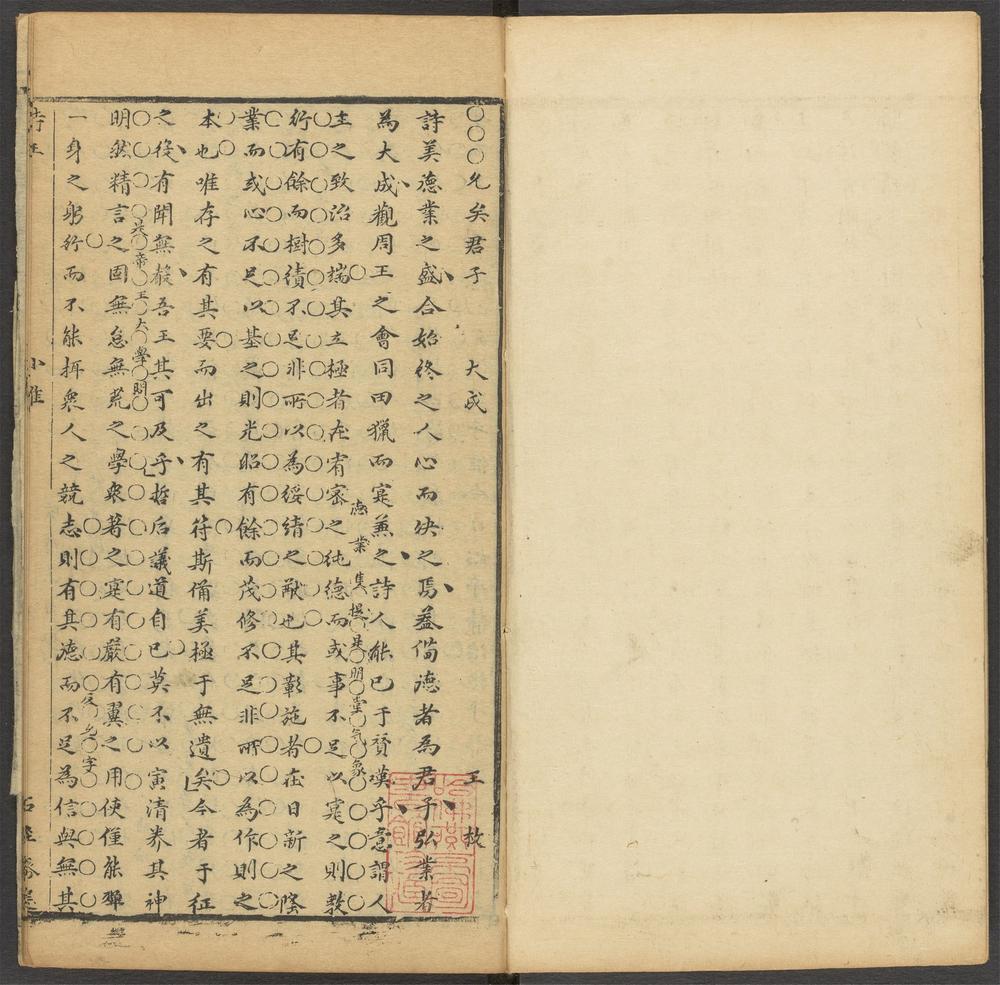 ○○○允矣君子　大成　王敉
詩美德業之盛合始終之人心而決之焉蓋偹德者為君子弘業者
為大成觀周王之會同田獵而寔蕪之詩人能已于贊嘆乎意謂人
德業隻提是明堂氣象
主之致治多端其立極者在宥密之純德而或事不足以寔之則敷
行有餘而樹績不足非所以為綏靖之猷也其彰施者在日新之隆
業而或心不足以基之則光昭有餘而茂修不足非所以為作則之
本也唯存之有其要而出之有其符斯偹美極于無遺矣今者于征
之後有聞無聲吾王其可及乎哲后議道自己莫不以寅清養其神
是帝王大學問
明然精言之固無怠無荒之學衆著之寔有嚴有翼之用使僅能殫
反允字
一身之躬行而不能揖衆人之競志則有其德而不足為信與無其
小雅